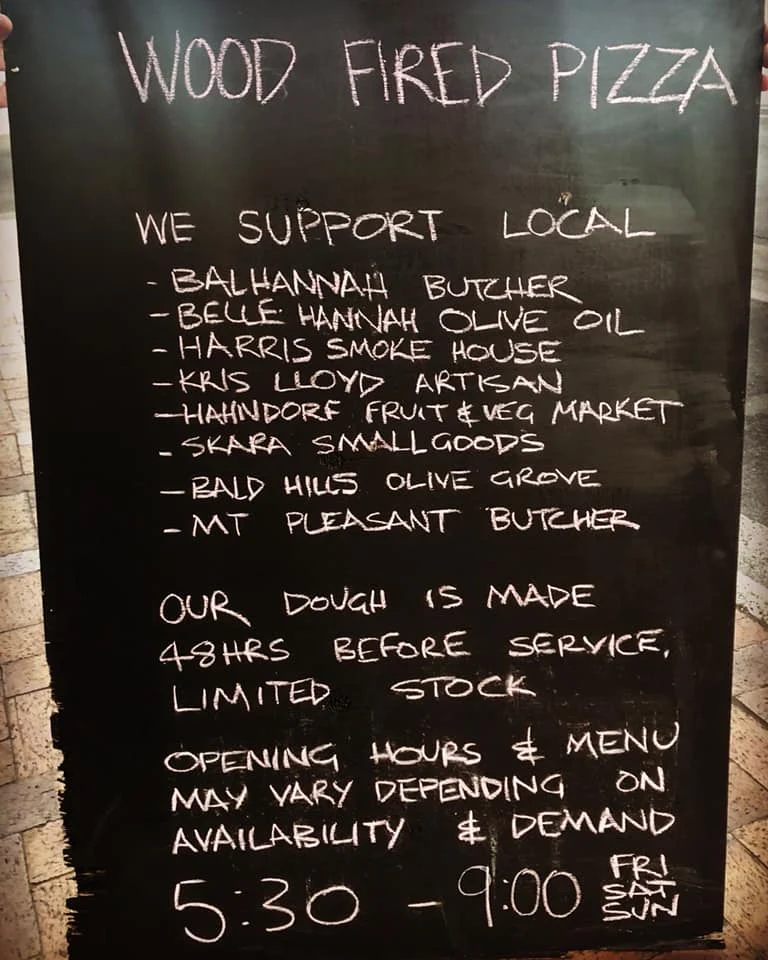 WOOD FIRED PIZZA
WE SUPPORT LOCAL
- BALHANNAH BUTCHER
- BELLE HANNAH OLIVE OIL
- HARRIS SMOKE HOUSE
- KRIS LLOYD ARTISAN
- HAHNDORF FRUIT & VEG MARKET
- SKARA SMALLGOODS
- BALD HILLS OLIVE GROVE
- MT PLEASANT BUTCHER
OUR DOUGH IS MADE
48HRS BEFORE SERVICE,
LIMITED STOCK
OPENING HOURS & MENU
MAY VARY DEPENDING ON
AVAILABILITY & DEMAND
5:30 - 9:00 FRI
SAT
SUN